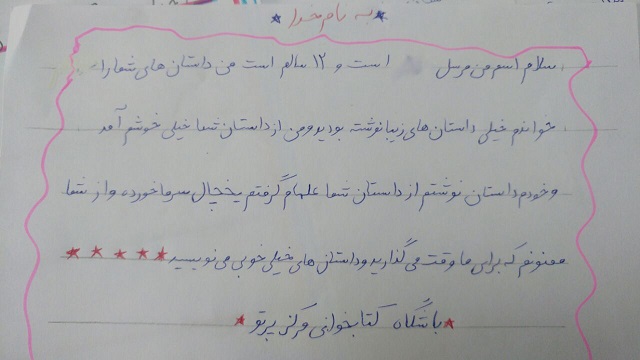 به نام خدا
سلام اسم من مرسل است و ۱۲ سالم است من داستان های شما را
خواندم خیلی داستان های زیبا نوشته بودید و من از داستان شما خیلی خوشم آمد
و خودم داستان نوشتم از داستان شما علهام گرفتم یخچال سرما خورده و از شما
ممنونم که برای ما وقت می گذارید و داستان های خیلی خوبی می نویسید
باشگاه کتابخوانی مرکز پرتو